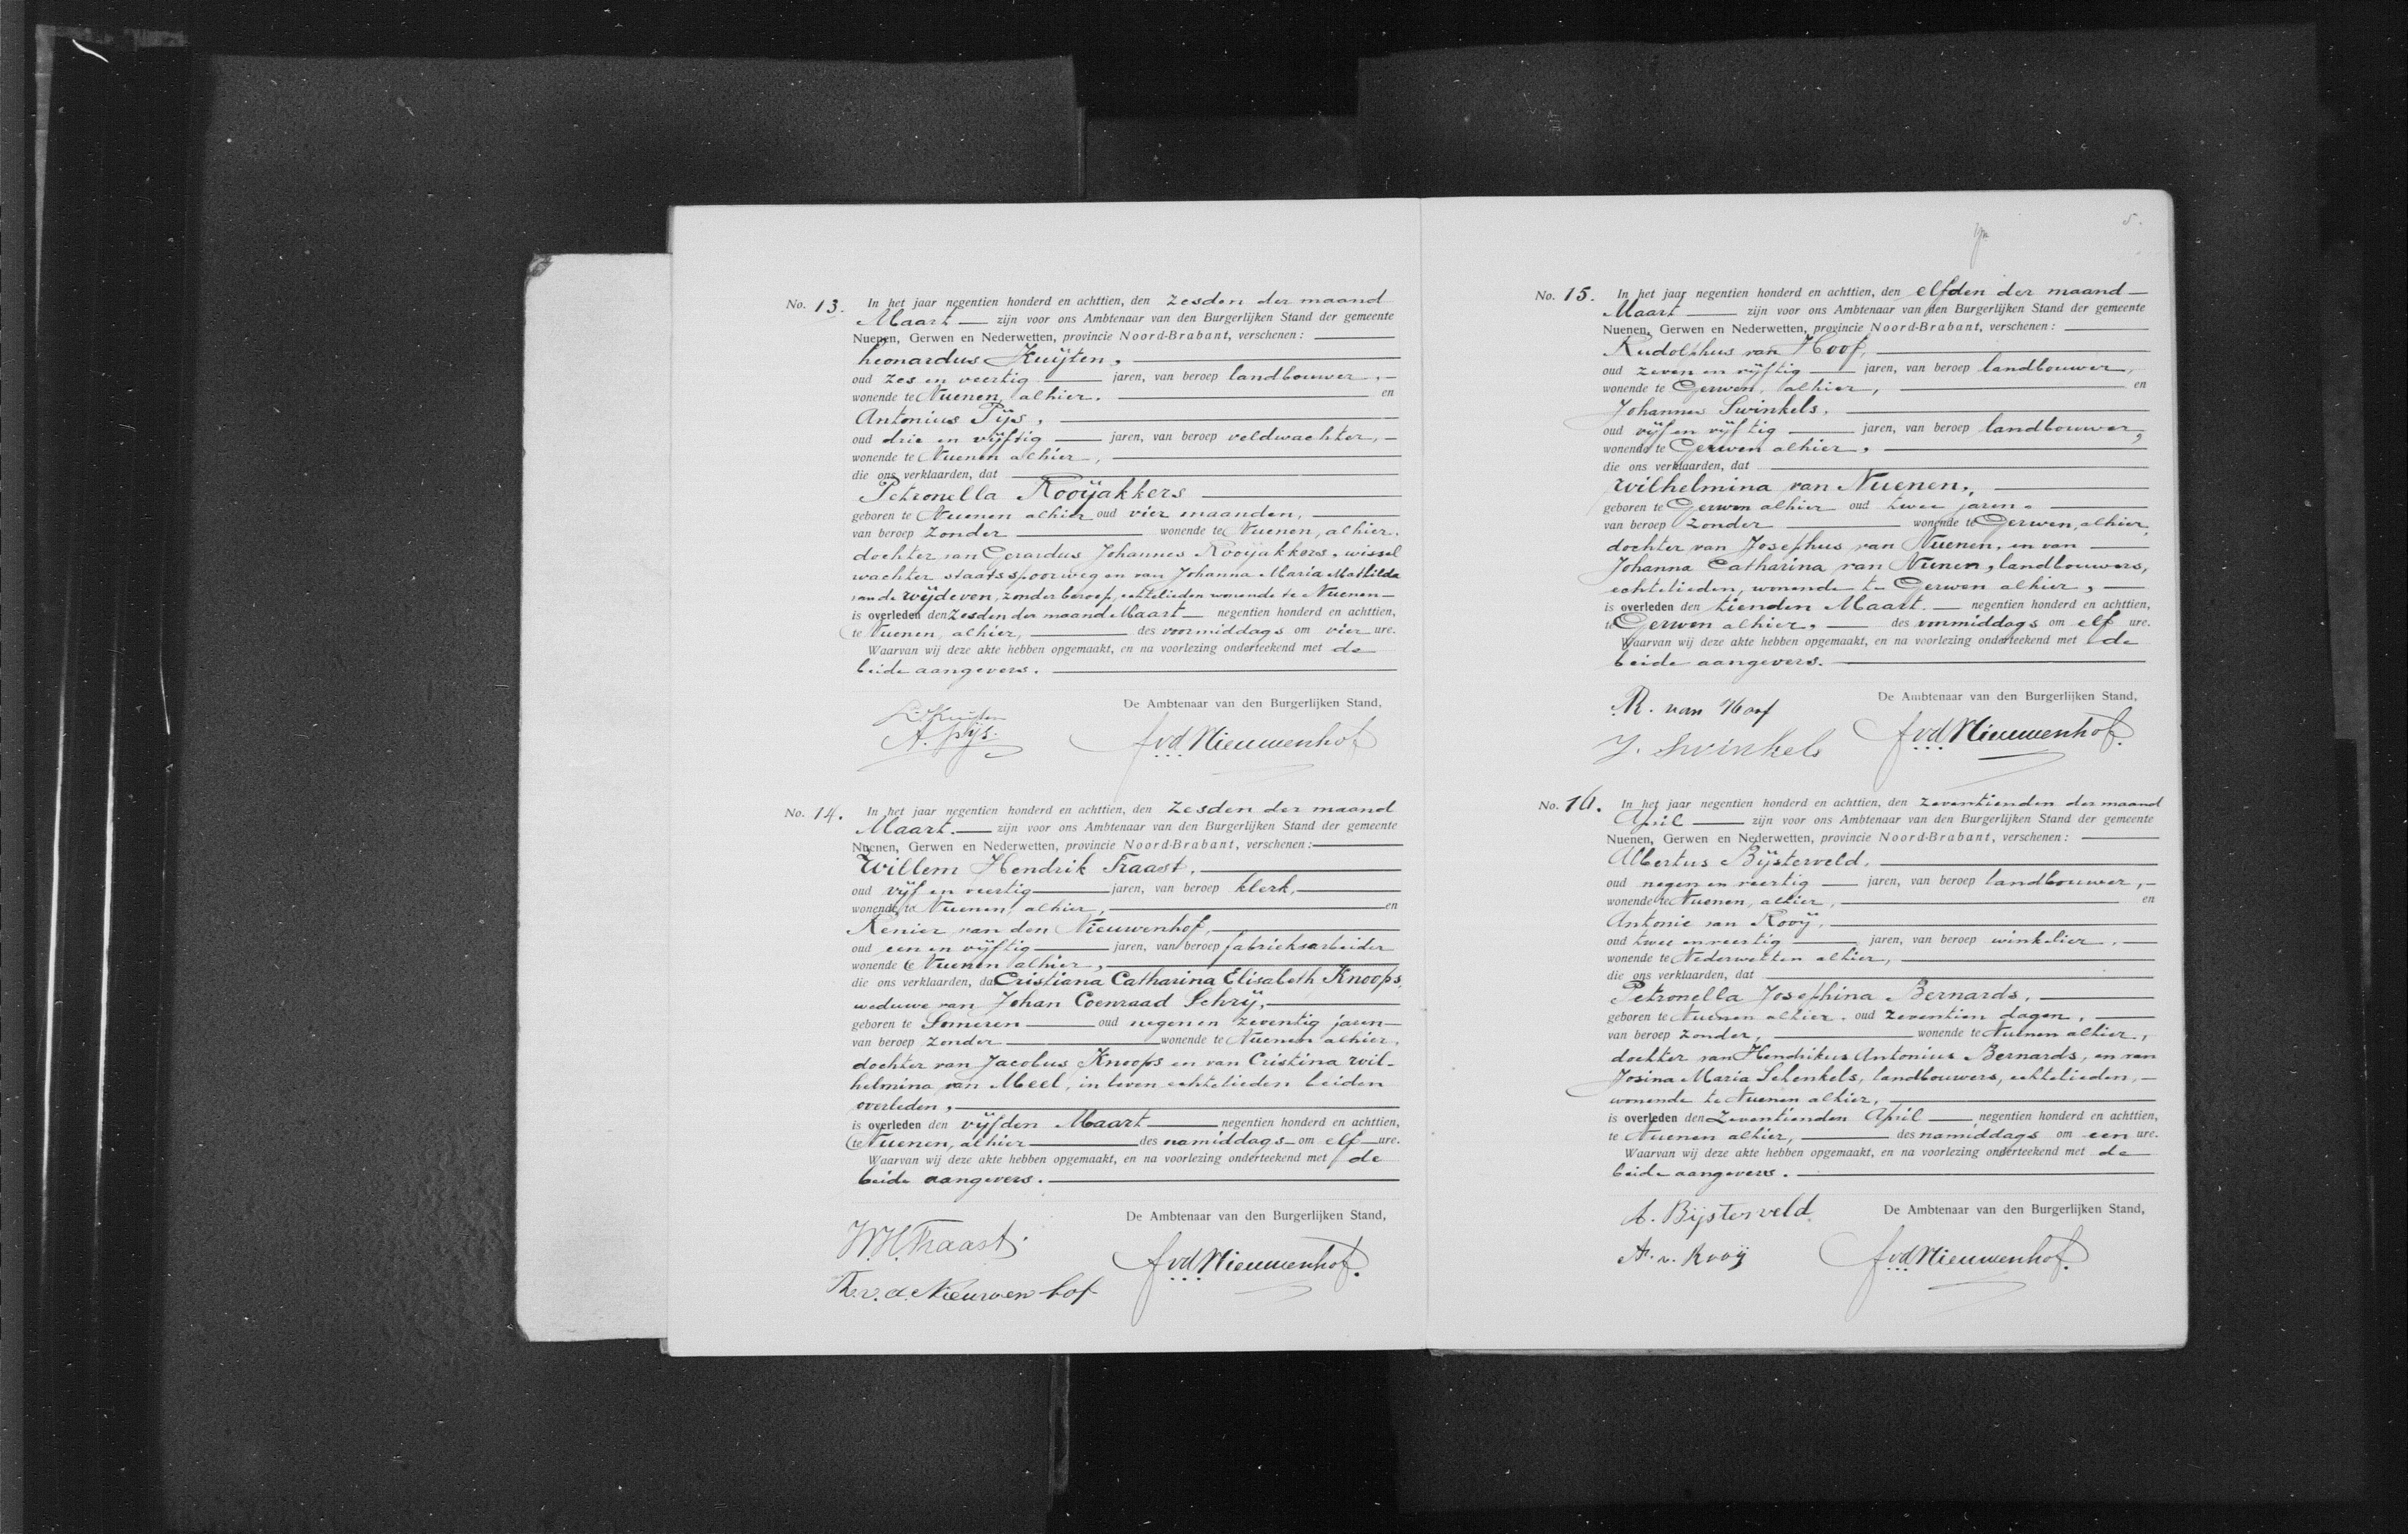 No. 13. In het jaar negentien honderd en achttien, den zesden der maand
Maart zijn voor ons Ambtenaar van den Burgerlijken Stand der gemeente
Nuenen, Gerwen en Nederwetten, provincie Noord-Brabant, verschenen:
Leonardus Kuijten,
oud zes en veertig jaren, van beroep landbouwer,
wonende te Nuenen, alhier, en
Antonius Pijs,
oud drie en vijftig jaren, van beroep veldwachter,
wonende te Nuenen alhier,
die ons verklaarden, dat
Petronella Rooijakkers
geboren te Nuenen alhier oud vier maanden,
van beroep zonder wonende te Nuenen, alhier,
dochter van Gerardus Johannes Rooijakkers, wissel
wachter staatsspoorweg en van Johanna Maria Mathilda
van de Wijdeven, zonder beroep, echtelieden wonende te Nuenen
is overleden den zesden der maand Maart negentien honderd en achttien,
te Nuenen, alhier, des voormiddags om vier ure.
Waarvan wij deze akte hebben opgemaakt, en na voorlezing onderteekend met de
beide aangevers.
De Ambtenaar van den Burgerlijken Stand,
L. Kuijten
A. Pijs.
JvdNieuwenhof
No. 14. In het jaar negentien honderd en achttien, den zesden der maand
Maart. zijn voor ons Ambtenaar van den Burgerlijken Stand der gemeente
Nuenen, Gerwen en Nederwetten, provincie Noord-Brabant, verschenen:
Willem Hendrik Fraast,
oud vijf en veertig jaren, van beroep klerk,
wonende te Nuenen, alhier, en
Renier van den Nieuwenhof,
oud een en vijftig jaren, van beroep fabrieksarbeider
wonende te Nuenen alhier,
die ons verklaarden, dat Cristiana Catharina Elisabeth Knoops,
weduwe van Johan Coenraad Schrij,
geboren te Someren oud negen en zeventig jaren
van beroep zonder wonende te Nuenen alhier,
dochter van Jacobus Knoops en van Cristina Wil-
helmina van Meel, in leven echtelieden beiden
overleden,
is overleden den vijfden Maart negentien honderd en achttien,
te Nuenen, alhier des namiddags om elf ure.
Waarvan wij deze akte hebben opgemaakt, en na voorlezing onderteekend met de
beide aangevers.
De Ambtenaar van den Burgerlijken Stand,
W.H. Fraast.
R. v. d. Nieuwenhof
JvdNieuwenhof.
5.
No. 15. In het jaar negentien honderd en achttien, den elfden der maand
Maart zijn voor ons Ambtenaar van den Burgerlijken Stand der gemeente
Nuenen, Gerwen en Nederwetten, provincie Noord-Brabant, verschenen:
Rudolphus van Hoof,
oud zeven en vijftig jaren, van beroep landbouwer,
wonende te Gerwen, alhier, en
Johannes Swinkels,
oud vijf en vijftig jaren, van beroep landbouwer,
wonende te Gerwen alhier,
die ons verklaarden, dat
Wilhelmina van Nuenen,
geboren te Gerwen alhier oud twee jaren.
van beroep zonder wonende te Gerwen, alhier,
dochter van Josephus van Nuenen, en van
Johanna Catharina van Nunen, landbouwers,
echtelieden, wonende te Gerwen alhier,
is overleden den tienden Maart. negentien honderd en achttien,
te Gerwen alhier, des voormiddags om elf ure.
Waarvan wij deze akte hebben opgemaakt, en na voorlezing onderteekend met de
beide aangevers.
De Ambtenaar van den Burgerlijken Stand,
R. van Hoof
J. Swinkels
JvdNieuwenhof.
No. 16. In het jaar negentien honderd en achttien, den zeventienden der maand
April zijn voor ons Ambtenaar van den Burgerlijken Stand der gemeente
Nuenen, Gerwen en Nederwetten, provincie Noord-Brabant, verschenen:
Albertus Bijsterveld,
oud negen en veertig jaren, van beroep landbouwer,
wonende te Nuenen, alhier, en
Antonie van Rooij,
oud twee en veertig jaren, van beroep winkelier,
wonende te Nederwetten alhier,
die ons verklaarden, dat
Petronella Josephina Bernards,
geboren te Nuenen alhier, oud zeventien dagen,
van beroep zonder, wonende te Nuenen alhier,
dochter van Hendrikus Antonius Bernards, en van
Josina Maria Schenkels, landbouwers, echtelieden,
wonende te Nuenen alhier,
is overleden den zeventienden April negentien honderd en achttien,
te Nuenen alhier, des namiddags om een ure.
Waarvan wij deze akte hebben opgemaakt, en na voorlezing onderteekend met de
beide aangevers.
De Ambtenaar van den Burgerlijken Stand,
A. Bijsterveld
A. v. Rooij
JvdNieuwenhof.